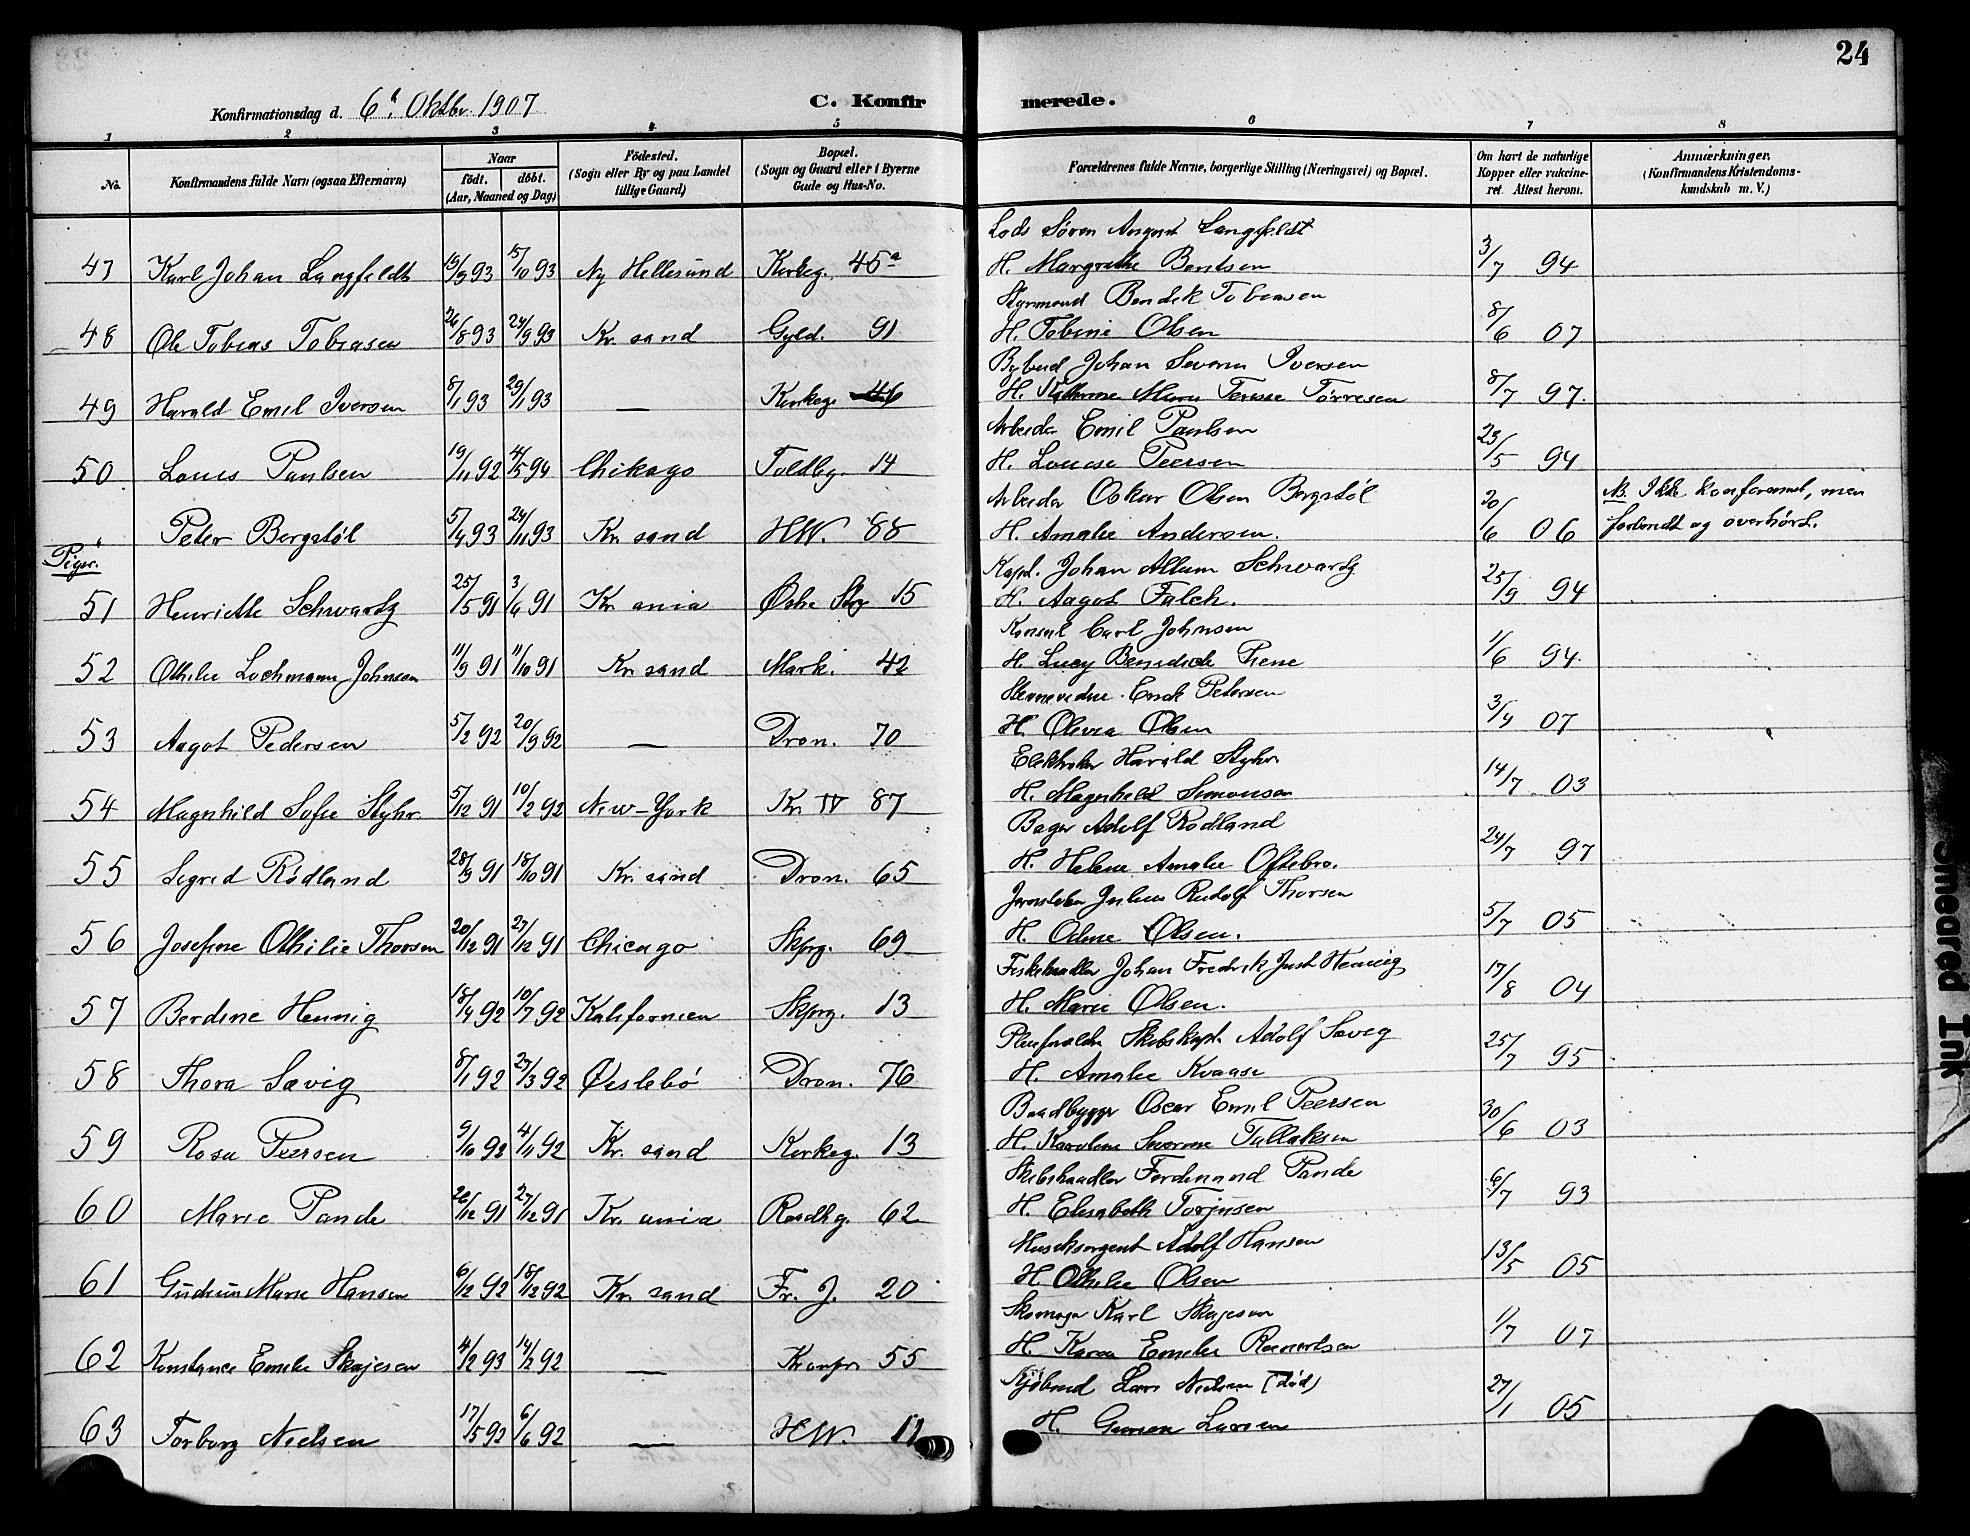 24
Konfirmationsdag d. 6. Oktbr. 1907 C. Konfirmerede.
1 2 3 4 5 6 7 8
No. Konfirmandens fulde Navn (ogsaa Efternavn) Naar født. døbt. (Aar, Maaned og Dag) Fødested. (Sogn eller By og paa Landet tillige Gaard) Bopæl. (Sogn og Gaard eller i Byerne Gade og Hus-No. Forældrenes fulde Navne, borgerlige Stilling (Næringsvei) og Bopæl. Om havt de naturlige Kopper eller vakcineret. Attest herom. Anmærkninger. (Konfirmandens Kristendomskundskab m. V.)
Lods Søren August Langfeldt
47 Karl Johan Langfeldt 19/9 93 15/10 93 Ny Hellesund Kirkeg. 45a H. Margrethe Bentsen 3/7 94
Styrmand Bendik Tobiasen
48 Ole Tobias Tobiasen 26/8 93 24/9 93 Kr. sand Gyld. 91 H. Tobine Olsen 8/6 07
Bybud Johan Severin Iversen
49 Harald Emil Iversen 8/1 93 29/1 93 — Kirkeg. 46 H. Kathrine Marie Terese Tørresen 8/7 97.
Arbeider Emil Paulsen
50 Louis Paulsen 19/11 92 4/5 94 Chikago Toldbg. 14 H. Louise Peersen 23/5 94
Arbeider Oskar Olsen Bergstøl NB. Ikke konfirmeret, men
Peter Bergstøl 5/4 93 24/11 93 Kr. sand H.W. 88 H. Amalie Andersen. 20/6 06 forberedt og overhørt.
Piger.
Kapt. Johan Allum Schwartz
51 Henriette Schwartz 25/5 91 3/6 91 Kr. ania Østre Str. 15 H. Aagot Falch. 25/9 94
Konsul Carl Johnsen
52 Othilie Lochmann Johnsen 11/9 91 11/10 91 Kr. sand Mark. 42 H. Lucy Benedicte Piene 1/6 94.
Petersen
53 Aagot Pedersen 5/2 92 20/9 92 — Dron. 70 H. Olivia Olsen 3/9 07
Elektriker Harald Styhr.
54 Magnhild Sofie Styhr 5/12 91 10/2 92 New-York Kr. IV 87 H. Magnhild Simonsen 14/7 03
Bager Adolf Rødland
55 Sigrid Rødland 28/9 91 18/10 91 Kr. sand Dron. 65 H. Helene Amalie Oftebro. 24/7 97
Jernstøber Julius Rudolf Thorsen
56 Josefine Othilie Thorsen 20/12 91 27/12 91 Chicago Skprg. 69 H. Odine Olsen. 5/7 05
Fiskehandler Johan Fredrik Just Hennig
57 Berdine Hennig 18/4 92 10/7 92 Kalifornien Skprg. 13 H. Marie Olsen. 17/8 04
Pleieforældre Skibskapt. Adolf Sævig
58 Thora Sævig 8/1 92 27/3 92 Øislebø Dron. 76 H. Amalie Kvaase 25/7 95
Baadbygger Oscar Emil Peersen
59 Rosa Peersen 9/10 92 4/11 92 Kr. sand Kirkeg. 13 H. Karoline Severine Tallaksen 30/6 03
Skibshandler Ferdinand Pande
60 Marie Pande 26/12 91 27/12 91 Kr. ania Raadhg. 62 H. Elisabeth Torjusen 6/7 93
Musiksergent Adolf Hansen
61 Gudrun Marie Hansen 6/12 92 18/12 92 Kr. sand Fr. J. 20 H. Othilie Olsen 13/5 05
Skomager Karl Skajesen
62 Konstance Emelie Skajesen 4/2 93 14/2 92 — Kronpr. 55 H. Karen Emelie Reinertsen 1/7 07
Kjøbmd Lars Nielsen (død)
63 Torborg Nielsen 17/5 92 6/6 92 — H.W. 11 H. Larsen 27/1 05
Smeared Ink